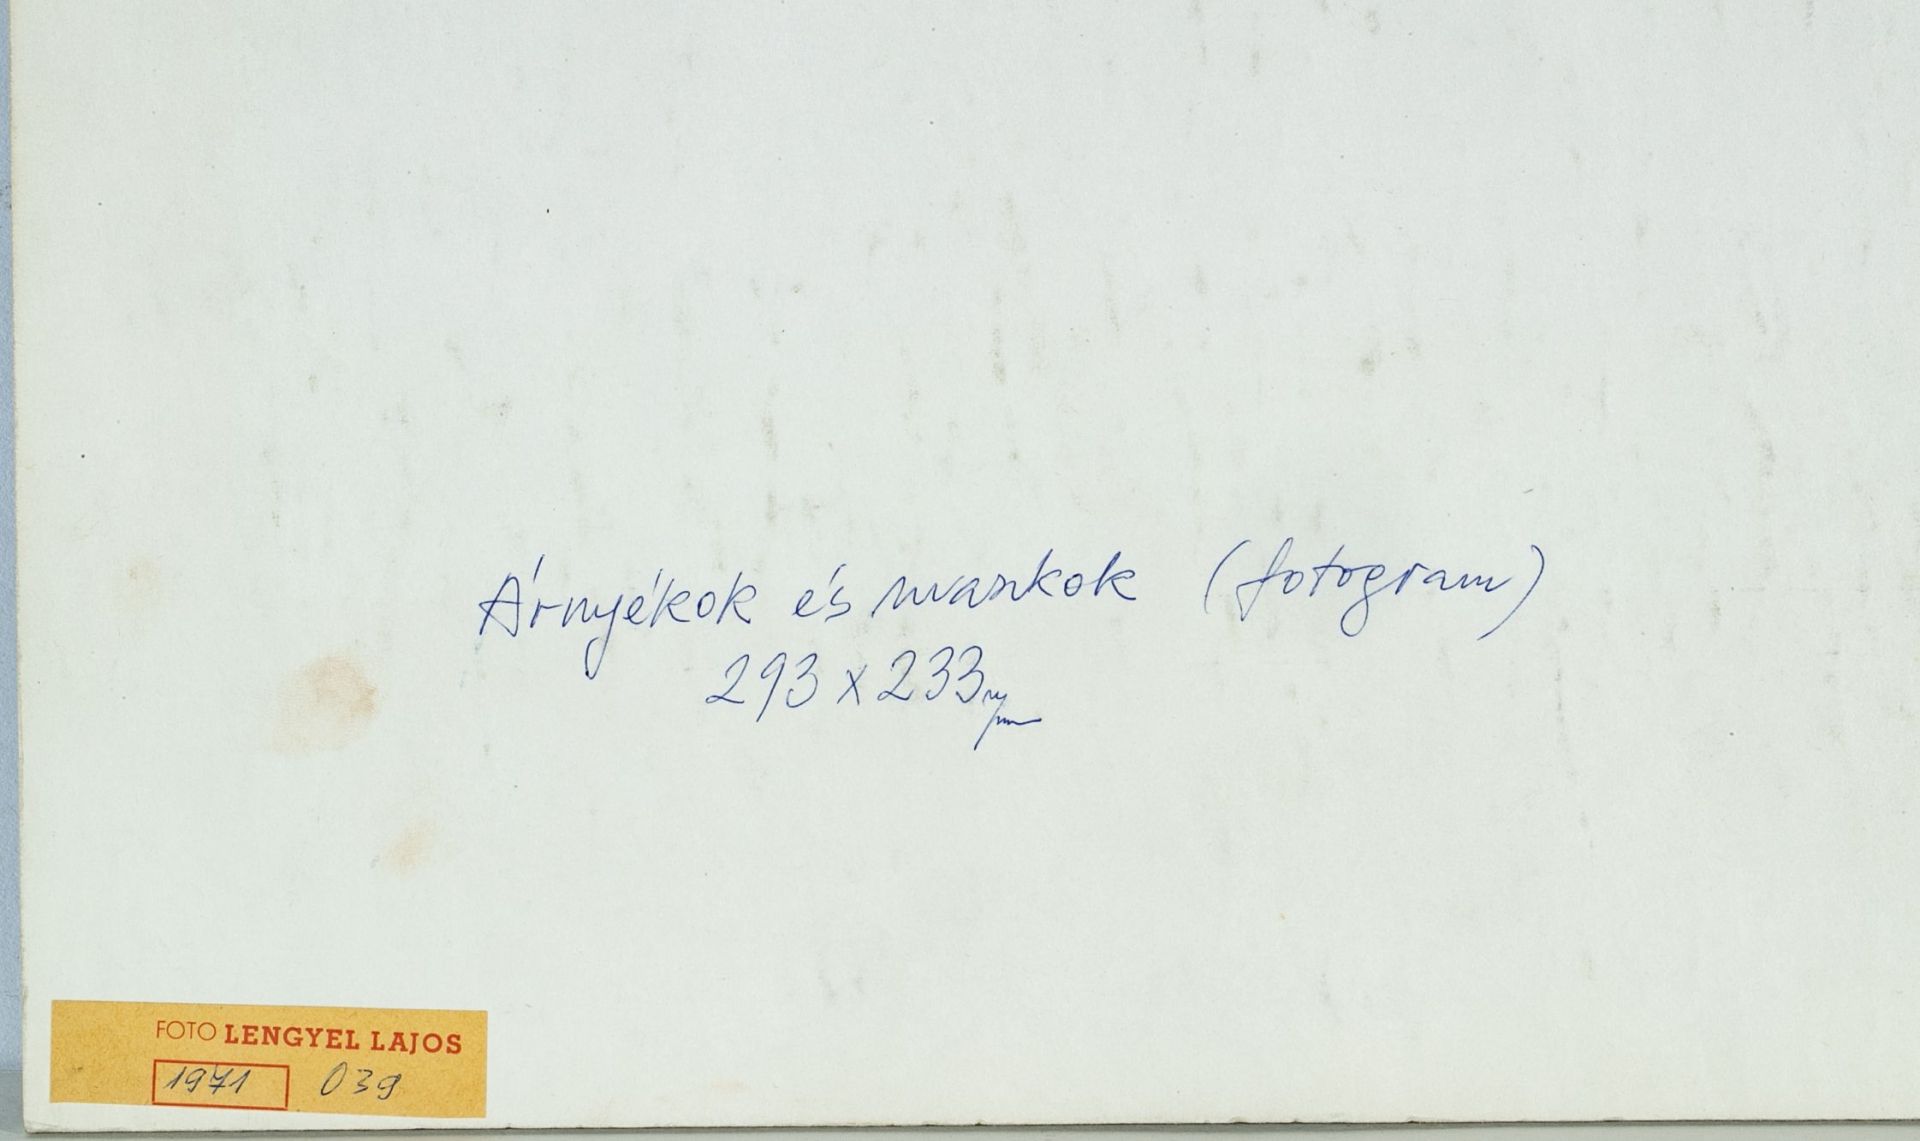 Árnyékok és maszkok (fotogram)
293 x 233 m/m
FOTO LENGYEL LAJOS
1971 039